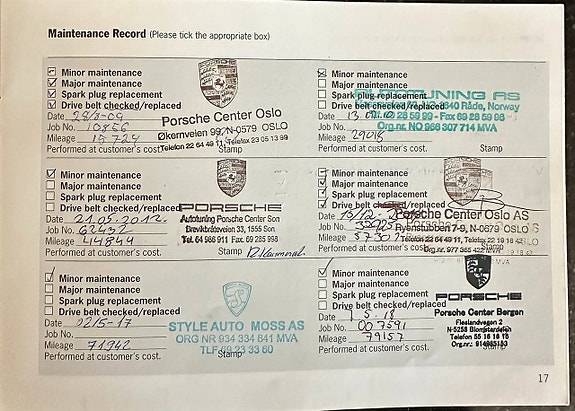 Maintenance Record (Please tick the appropriate box)
Minor maintenance
Major maintenance
Spark plug replacement
Drive belt checked/replaced
Date 28/8-09
Job No. 10866
Mileage 15724
Performed at customer's cost.
Stamp
PORSCHE
Porsche Center Oslo
Økernveien 99, N-0579 OSLO
Telefon 22 64 49 11, Telefax 23 05 13 99
Minor maintenance
Major maintenance
Spark plug replacement
Drive belt checked/replaced
Date
Job No.
Mileage 29018
Performed at customer's cost.
Stamp
TUNING AS
1640 Råde, Norway
Org.nr. NO 966 307 714 MVA
Minor maintenance
Major maintenance
Spark plug replacement
Drive belt checked/replaced
Date 21.05.2012.
Job No. 62432
Mileage 44844
Performed at customer's cost.
Stamp
PORSCHE
Autotuning Porsche Center Son
Brevikbråteveien 33, 1555 Son
Tel. 64 986 911 Fax. 69 285 998
Minor maintenance
Major maintenance
Spark plug replacement
Drive belt checked/replaced
Date
Job No.
Mileage
Performed at customer's cost.
Porsche Center Oslo AS
Ryenstubben 7-9, N-0679 OSLO
Telefon 22 64 49 11, Telefax 22 19 18
Minor maintenance
Major maintenance
Spark plug replacement
Drive belt checked/replaced
Date 02/5-17
Job No.
Mileage 71942
Performed at customer's cost.
Stamp
STYLE AUTO MOSS AS
ORG NR 934 334 841 MVA
TLF 69 23 33 60
Minor maintenance
Major maintenance
Spark plug replacement
Drive belt checked/replaced
Date 1-5-18
Job No. 007591
Mileage 79157
Performed at customer's cost.
Stamp
PORSCHE
Porsche Center Bergen
Flaslandvegen 2
N-5258 Blomsterdalen
17